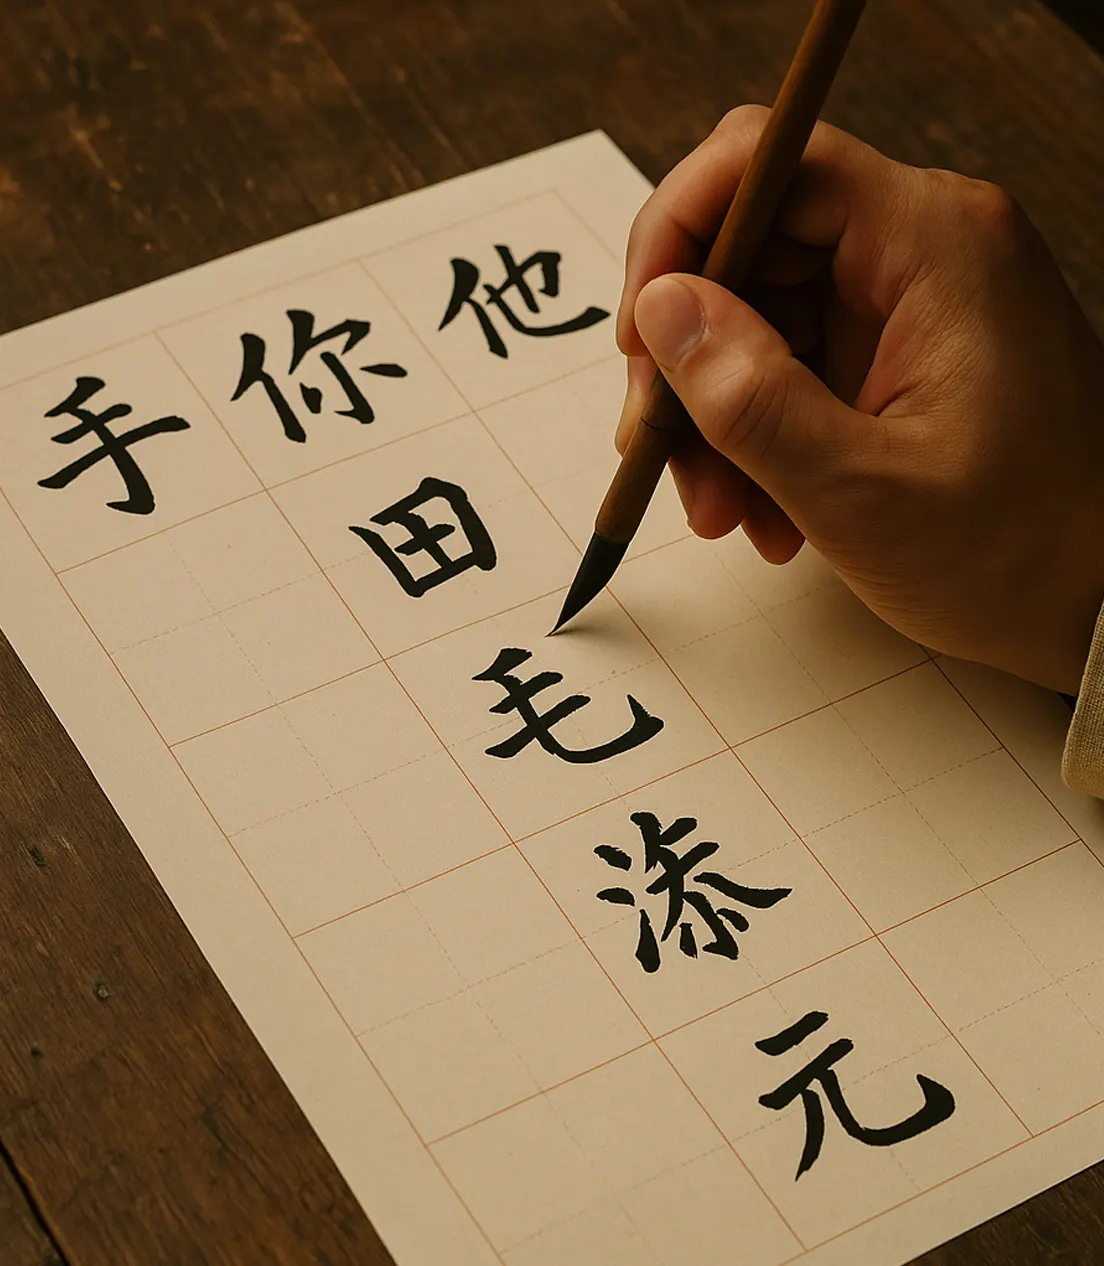 手你他
田
毛
添
元